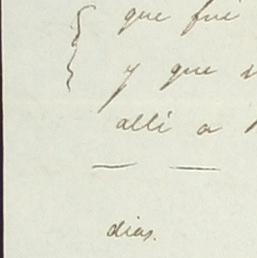 que fué
y que
allí a
dias.